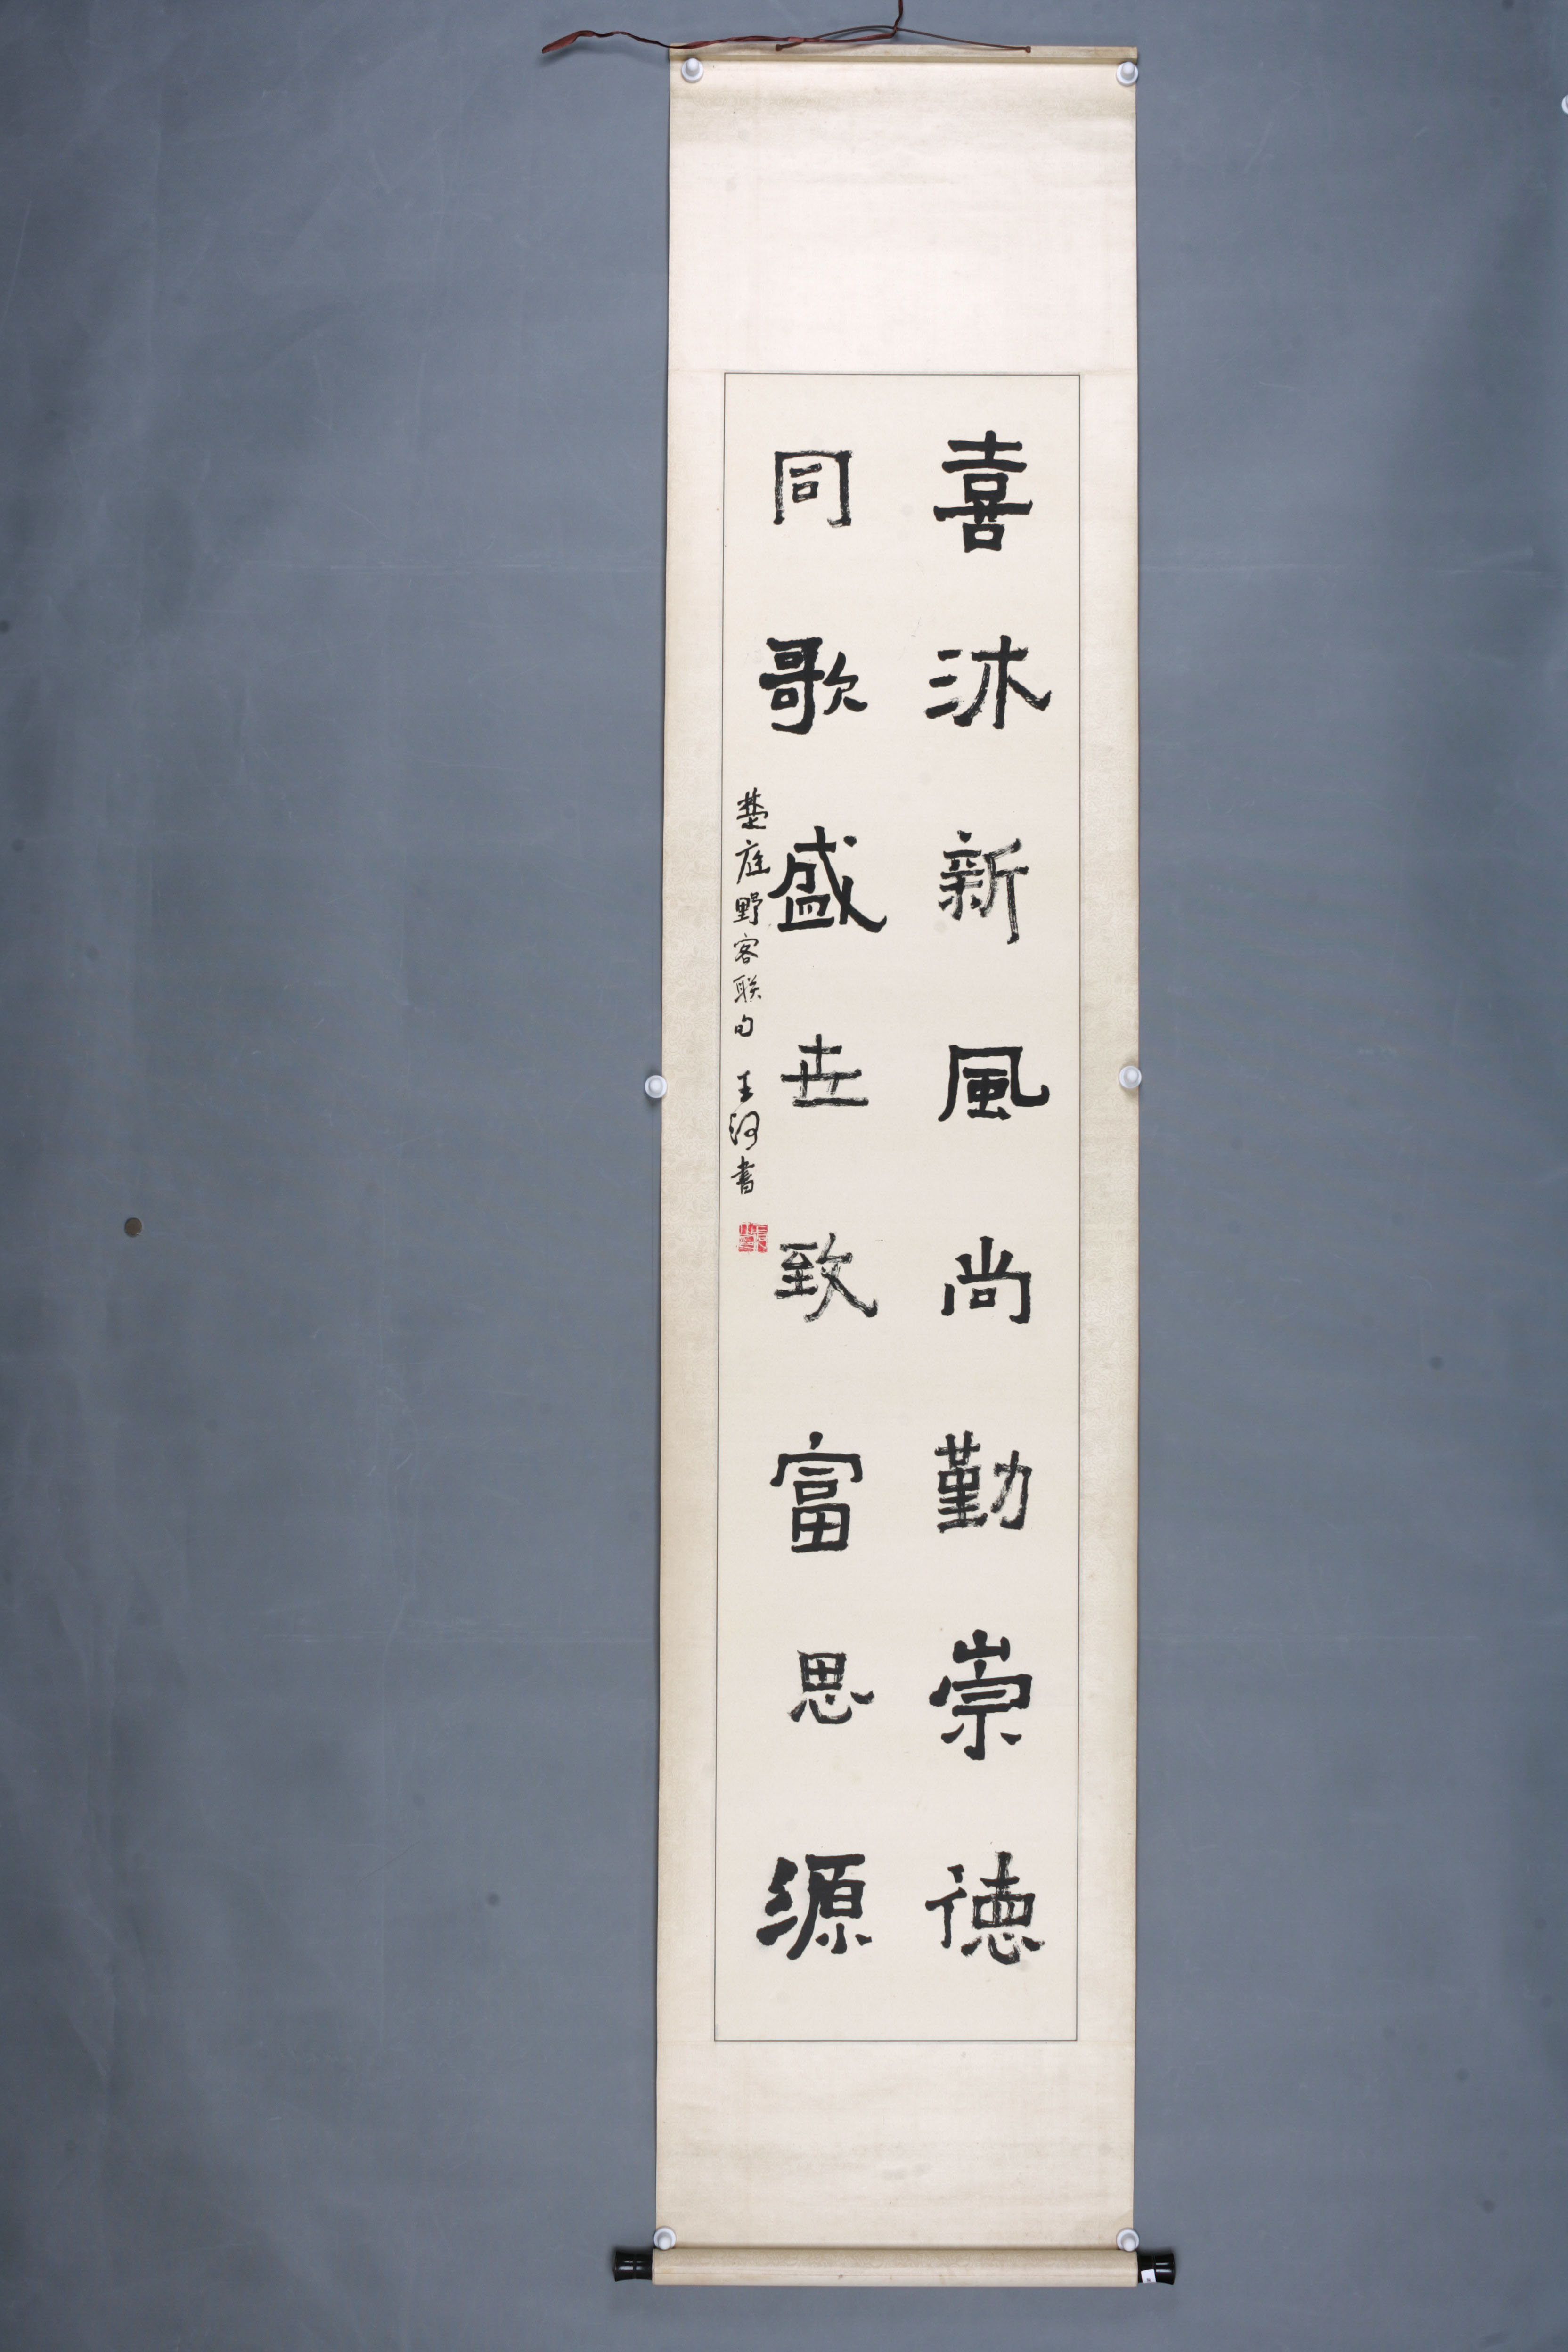 喜沐新風尚勤崇德
同歌盛世致富思源
楚庭野客联句 王河書